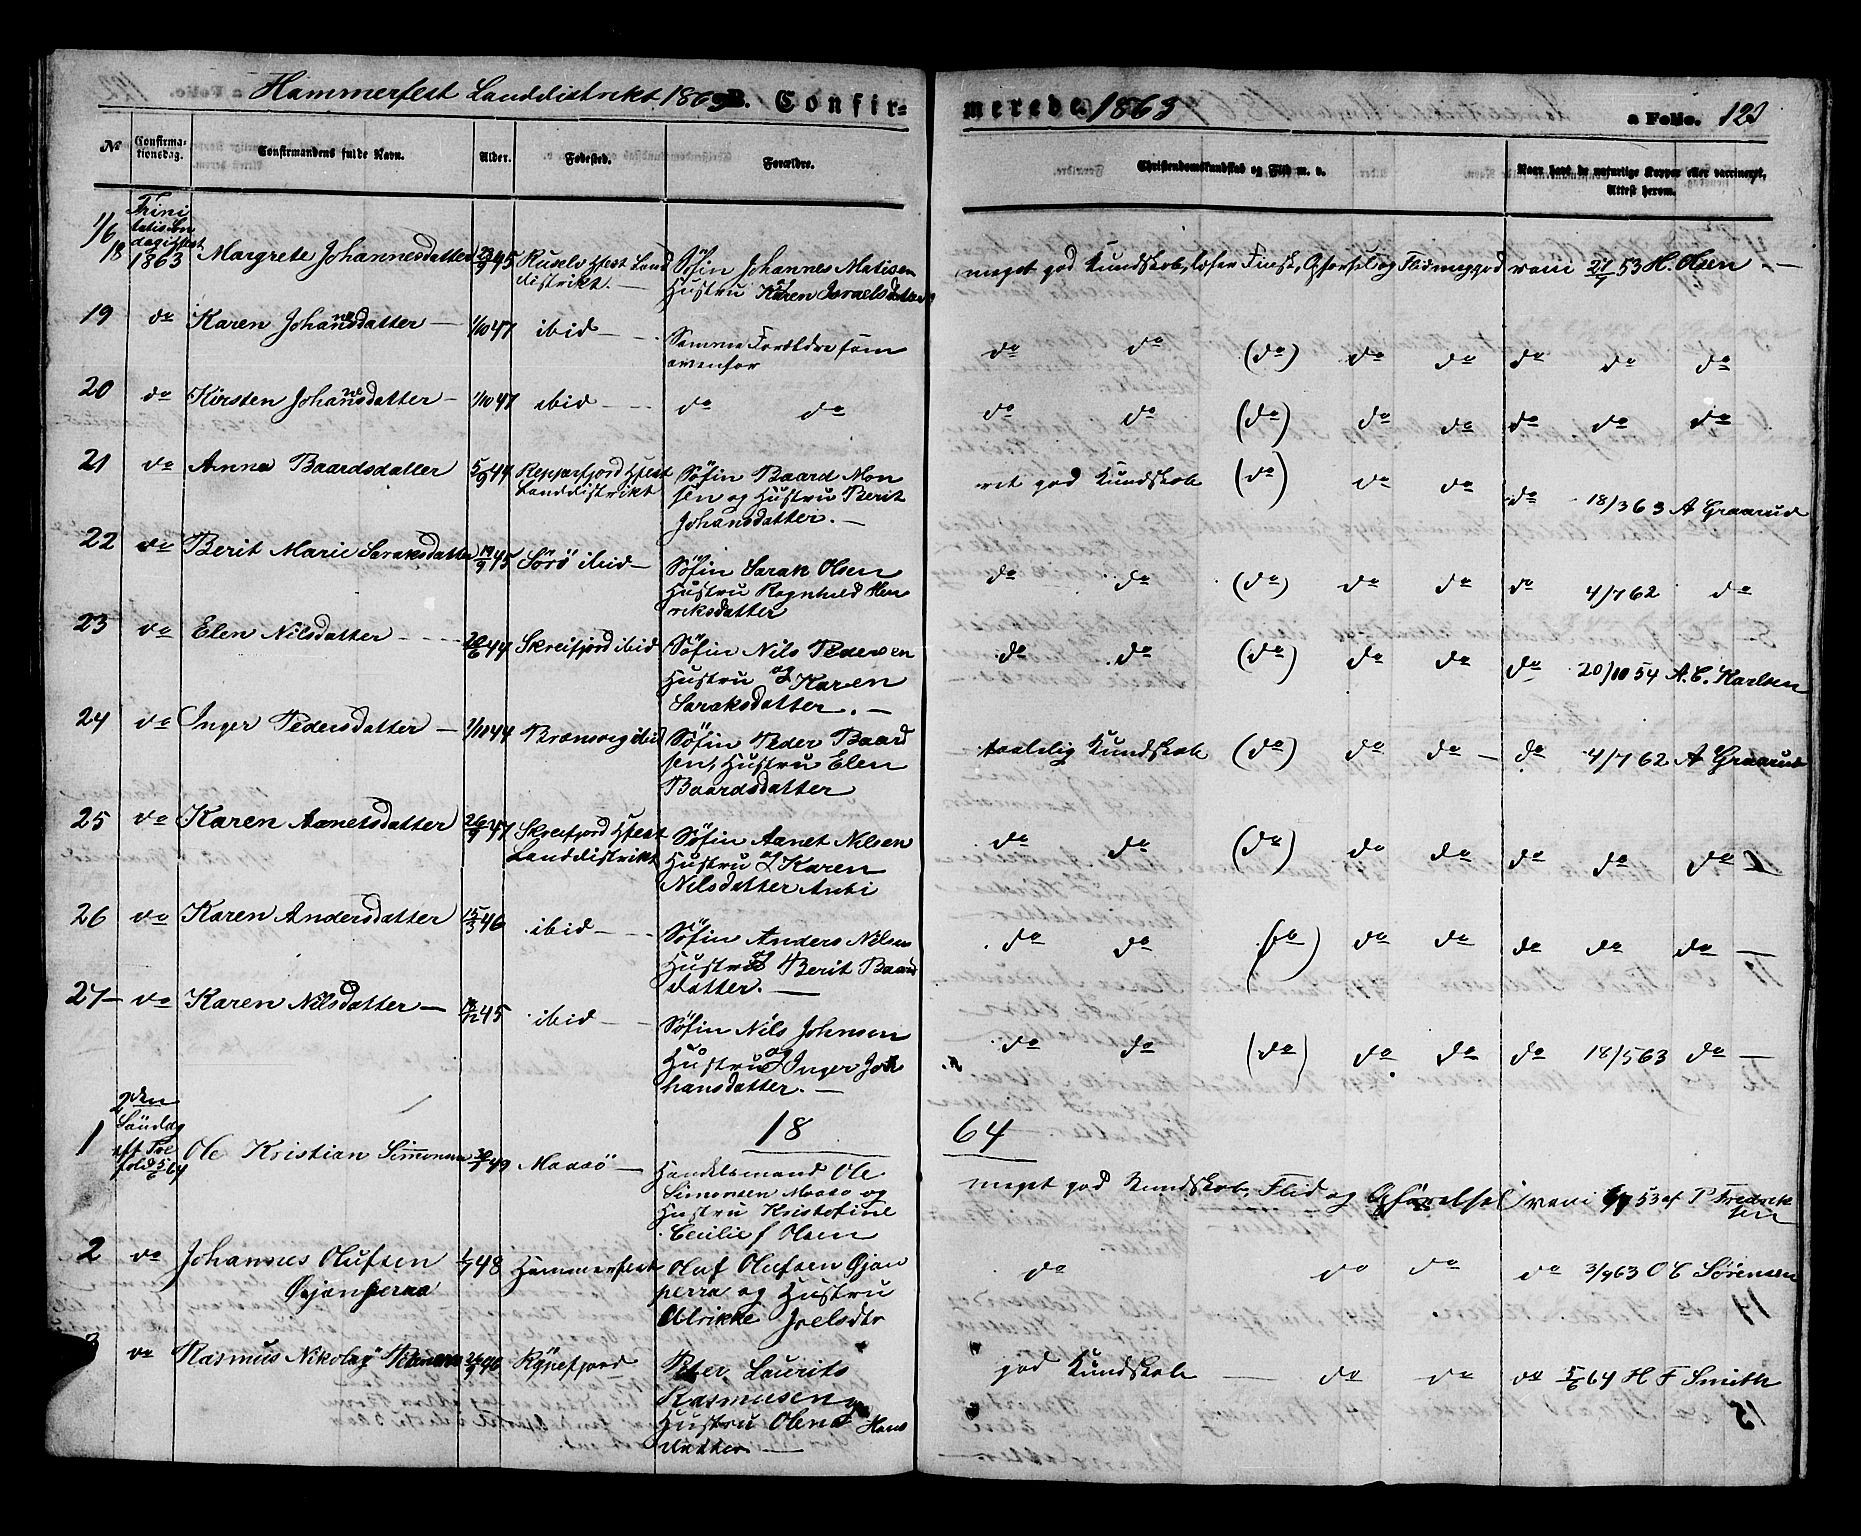 Hammerfest Landdistrikt 1863 B. Confir=
merede 1863
a Folio. 123
No
Confirma-
tionsdag.
Confirmandens fulde Navn.
Alder.
Fødested.
Forældre.
Christendomskundskab og Flid m. v.
Naar havt de naturlige Kopper eller vaccineret,
Attest herom.
1/6
Trini
tatis Søn
dag
18 1863 Margrete Johannesdatter 45 Landdistrikt.
Søfin Johannes Matisen
Hustru Karen Israelsdatter
meget god Kundskab, læser Finsk, Opførsel og Flid meget god
vacc 53 H. Olsen —
19 do Karen Johannesdatter — 1/10 47 ibid —
Samme Forældre som
ovenfor
do do (do) do do do do do
20 do Kirsten Johannesdatter — 1/10 47 ibid — do do
do do (do) do do do do do
21 do Anna Baardsdatter 5/9 47 Repparfjord Hfest
Landdistrikt
Søfin Baard Mon
sen og Hustru Berit
Johansdatter. —
ret god Kundskab (do) do do do 18/3 63 A Graarud
22 do Berit Marie Saraksdatter 45 Sørø ibid —
Søfin Sarak Olsen
Hustru Ragnhild Hen
riksdatter
do do (do) do do do 4/7 62 do
23 do Elen Nilsdatter — 44 Skreifjord ibid
Søfin Nils Pedersen
Hustru og Karen
Saraksdatter. —
do do (do) do do do 20/10 54 A. C. Karlsen
24 do Inger Pedersdatter — 44 ibid
Søfin Peder Baard
sen, Hustru Elen
Baardsdatter
taalelig Kundskab (do) do do — do 4/7 62 A Graarud
25 do Karen Aanetsdatter 26/9 47 Skreifjord Hfest
Landdistrikt
Søfin Aanet Nilsen
Hustru og Karen
Nilsdatter Anti
do do (do) do do do do do
26 do Karen Andersdatter 15/3 46 ibid —
Søfin Anders Nilsen
Hustru og Berit Baards
datter. —
do do (do) do do do do do —
27 — do Karen Nilsdatter — 45 ibid —
Søfin Nils Johnsen
Hustru og Inger Jo
hansdatter. —
do do (do) do do do 18/5 63 do —
18 64
2den
Søndag
eft
5/6 64
1 Ole Kristian Simonsen 49 Maasø —
Handelsmand Ole
Simonsen Maasø og
Hustru Kristofine
Cecilie f Olsen
meget god Kundskab, Flid og Opførelsel vacc 53 af P Fredrik
sen
2 do Johannes Olufsen
Øjanperaa
48 Hammerfest
Oluf Olufsen Øjan
perra og Hustru
Ulrikke Joelsdtr
do do do do 3/9 63 O C Sørensen
3 do Rasmus Nikolay 46 Rypefjord
Peter Laurits
Rasmusen og
Hustru Olena Hans
datter —
god Kundskab — do do do 5/6 64 H F Smith